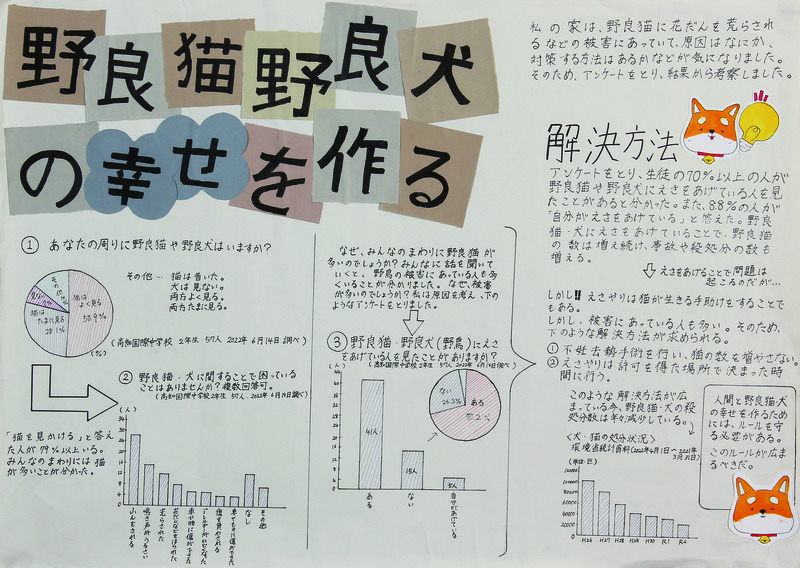 野良猫野良犬
の幸せを作る
私の家は、野良猫に花だんを荒らされ
るなどの被害にあっていて、原因はなにか、
対策する方法はあるかなどが気になりました。
そのため、アンケートをとり、結果から考察しました。
① あなたの周りに野良猫や野良犬はいますか?
その他… 猫は昔いた。
犬は見ない。
両方よく見る。
両方たまに見る。
猫は
よく見る
50.9%
猫は
たまに見る
28.1%
その他
(%)
(高知国際中学校 2年生 57人 2022年 6月14日 調べ)
「猫を見かける」と答え
た人が79%以上いる。
みんなのまわりには猫
が多いことが分かった。
② 野良猫・犬に関することで困っている
ことはありませんか?複数回答可。
(高知国際中学校2年生 57人・2022年6月14日調べ)
(人)
ふんをされる
鳴き声がうるさい
荒らされた
なし
その他
なぜ、みんなのまわりに野良猫が
多いのでしょうか?みんなに話を聞いて
いくと、野鳥の被害にあっている人も多
くいることが分かりました。なぜ、被害
が多いのでしょうか?私は原因を考え、下の
ようなアンケートをとりました。
③ 野良猫・野良犬(野鳥)にえさ
をあげている人を見たことがありますか?
(高知国際中学校2年生 57人・2022年6月14日調べ)
(人)
41人
15人
5人
ある
ない
自分があげている
ない
26.3%
ある
解決方法
アンケートをとり、生徒の70%以上の人が
野良猫や野良犬にえさをあげている人を見
たことがあると分かった。また、8.8%の人が
「自分がえさをあげている」と答えた。野良
猫・犬にえさをあげていることで、野良猫
の数は増え続け、事故や殺処分の数も
増える。
えさをあげることで問題は
起こるのだが…
しかし!! えさやりは猫が生きる手助けをすることで
もある。
しかし、被害にあっている人も多い。そのため、
下のような解決方法が求められる。
① 不妊去勢手術を行い、猫の数を増やさない。
② えさやりは許可を得た場所で決まった時
間に行う。
このような解決方法が広
まっている今、野良猫・犬の殺
処分数は年々減少している。
<犬・猫の処分状況>
環境省統計資料(2022年4月1日~2021年
3月31日)
(単位:匹)
120000
100000
80000
60000
40000
20000
0
H26 H27 H28 H29 H30 R1 R2
人間と野良猫・犬
の幸せを作るため
には、ルールを守
る必要がある。
このルールが広まる
べきだ。